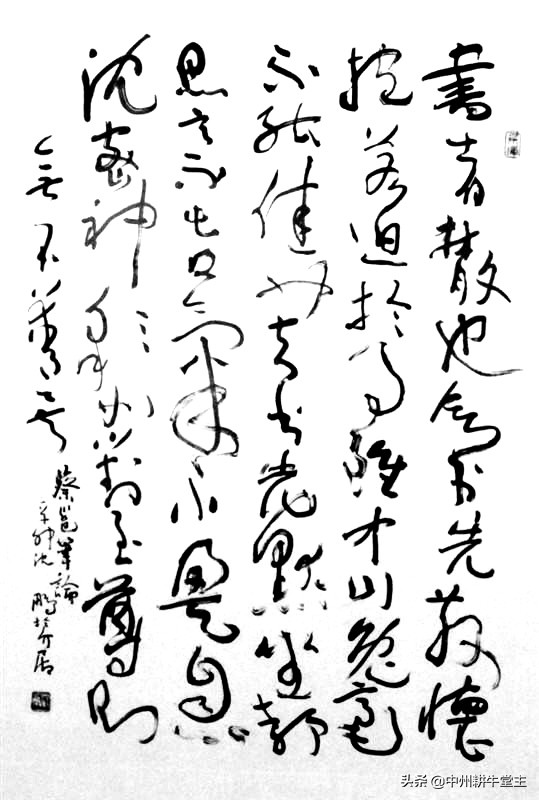 書者散也欲書先散懷
抱若迫於事雖中山兔毫
不能佳也夫書先默坐靜
思言不出口氣不盈息
沈密神彩如對至尊則
無不善矣
蔡邕筆論
辛卯沈鵬於介居
头条 @中州耕牛堂主